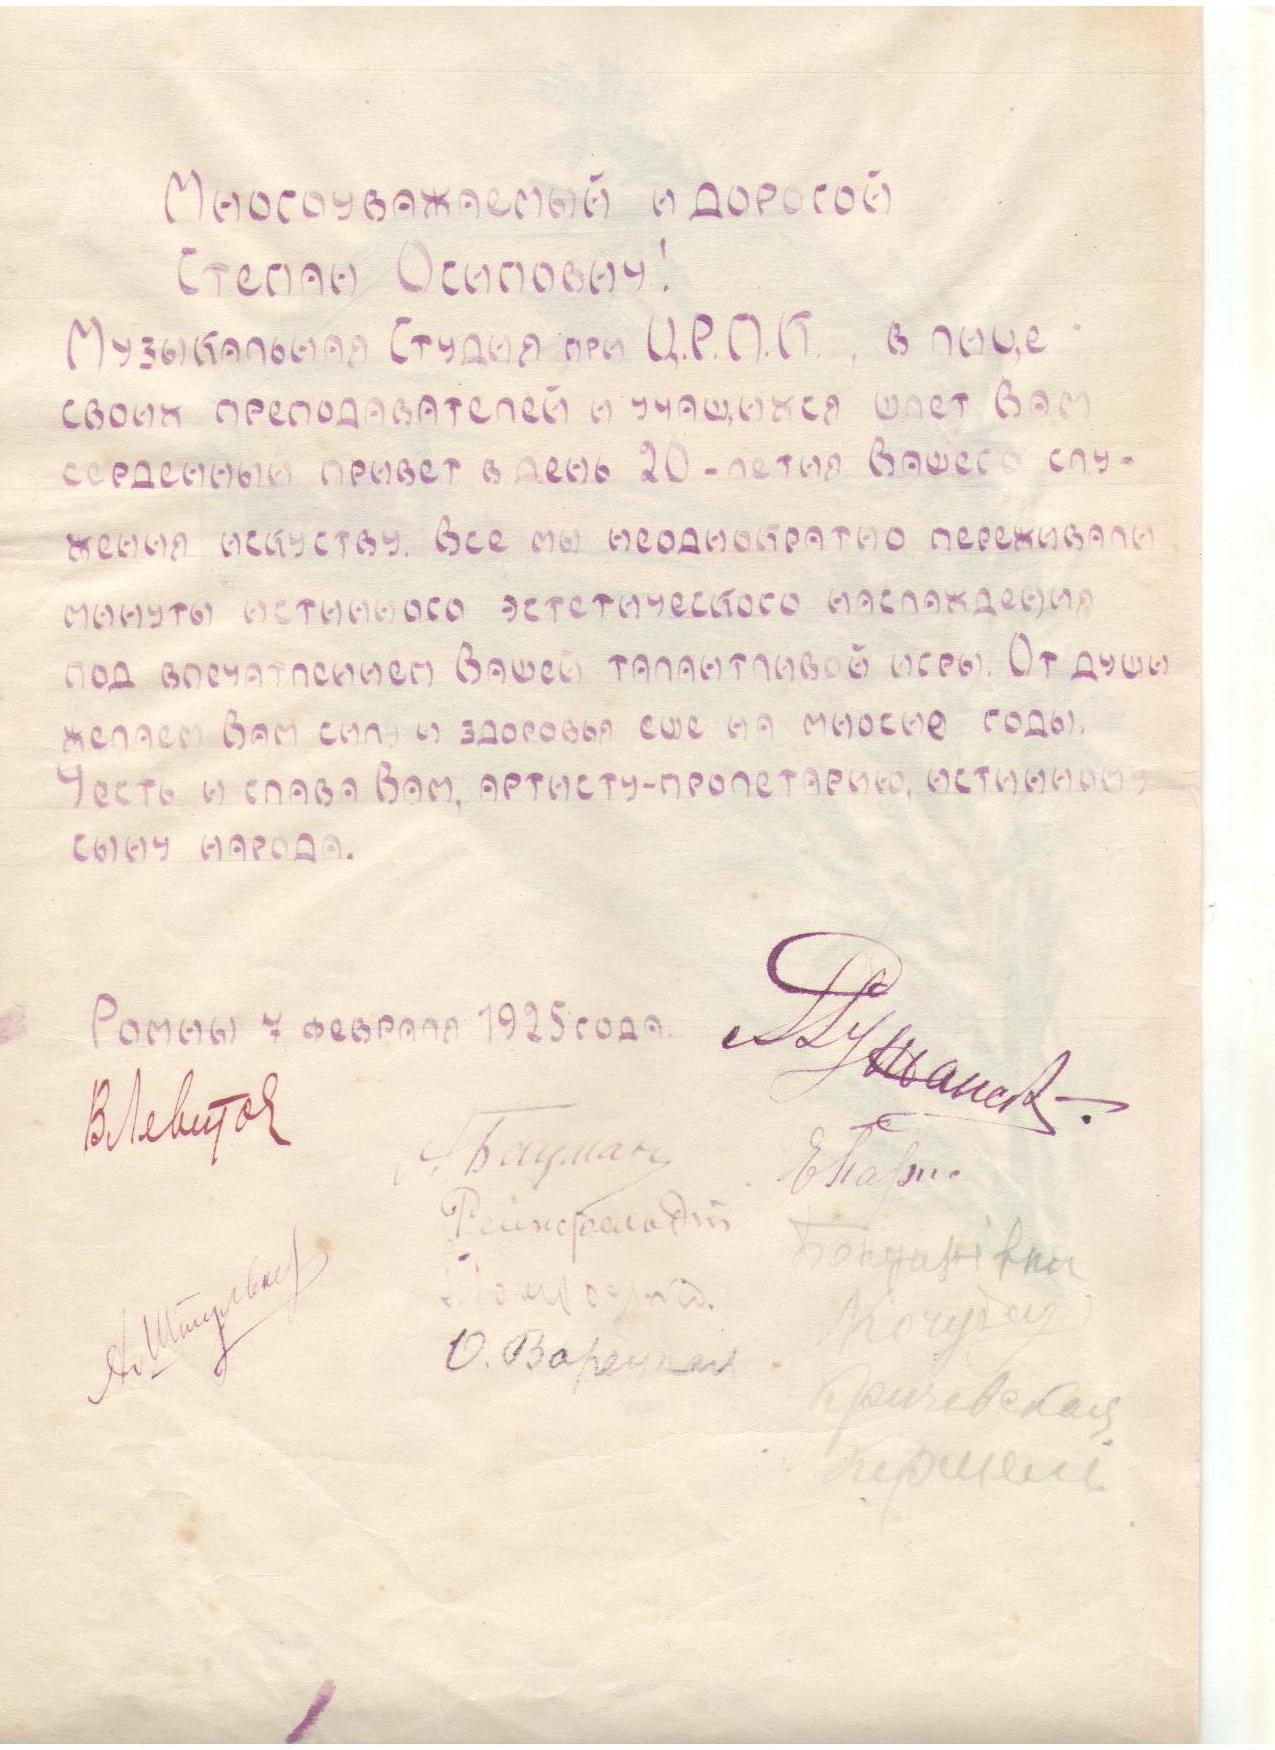 Многоуважаемый и дорогой
Степан Осипович!
Музыкальная Студия при Ц.Р.П.К., в лице
своих преподавателей и учащихся шлет Вам
серденный привет в день 20-летия Вашего слу-
жения искуству. Все мы неоднократно переживали
минуты истинного эстетического наслаждения
под впечатлением Вашей талантливой игры. От души
желаем Вам силы и здоровья еше на многие годы.
Честь и слава Вам, артисту-пролетарию, истинному
сыну народа.
Ромны 7 февраля 1925 года.
В Левитов
Бауман
Рейнфельдт
Кочубей
Кричевская